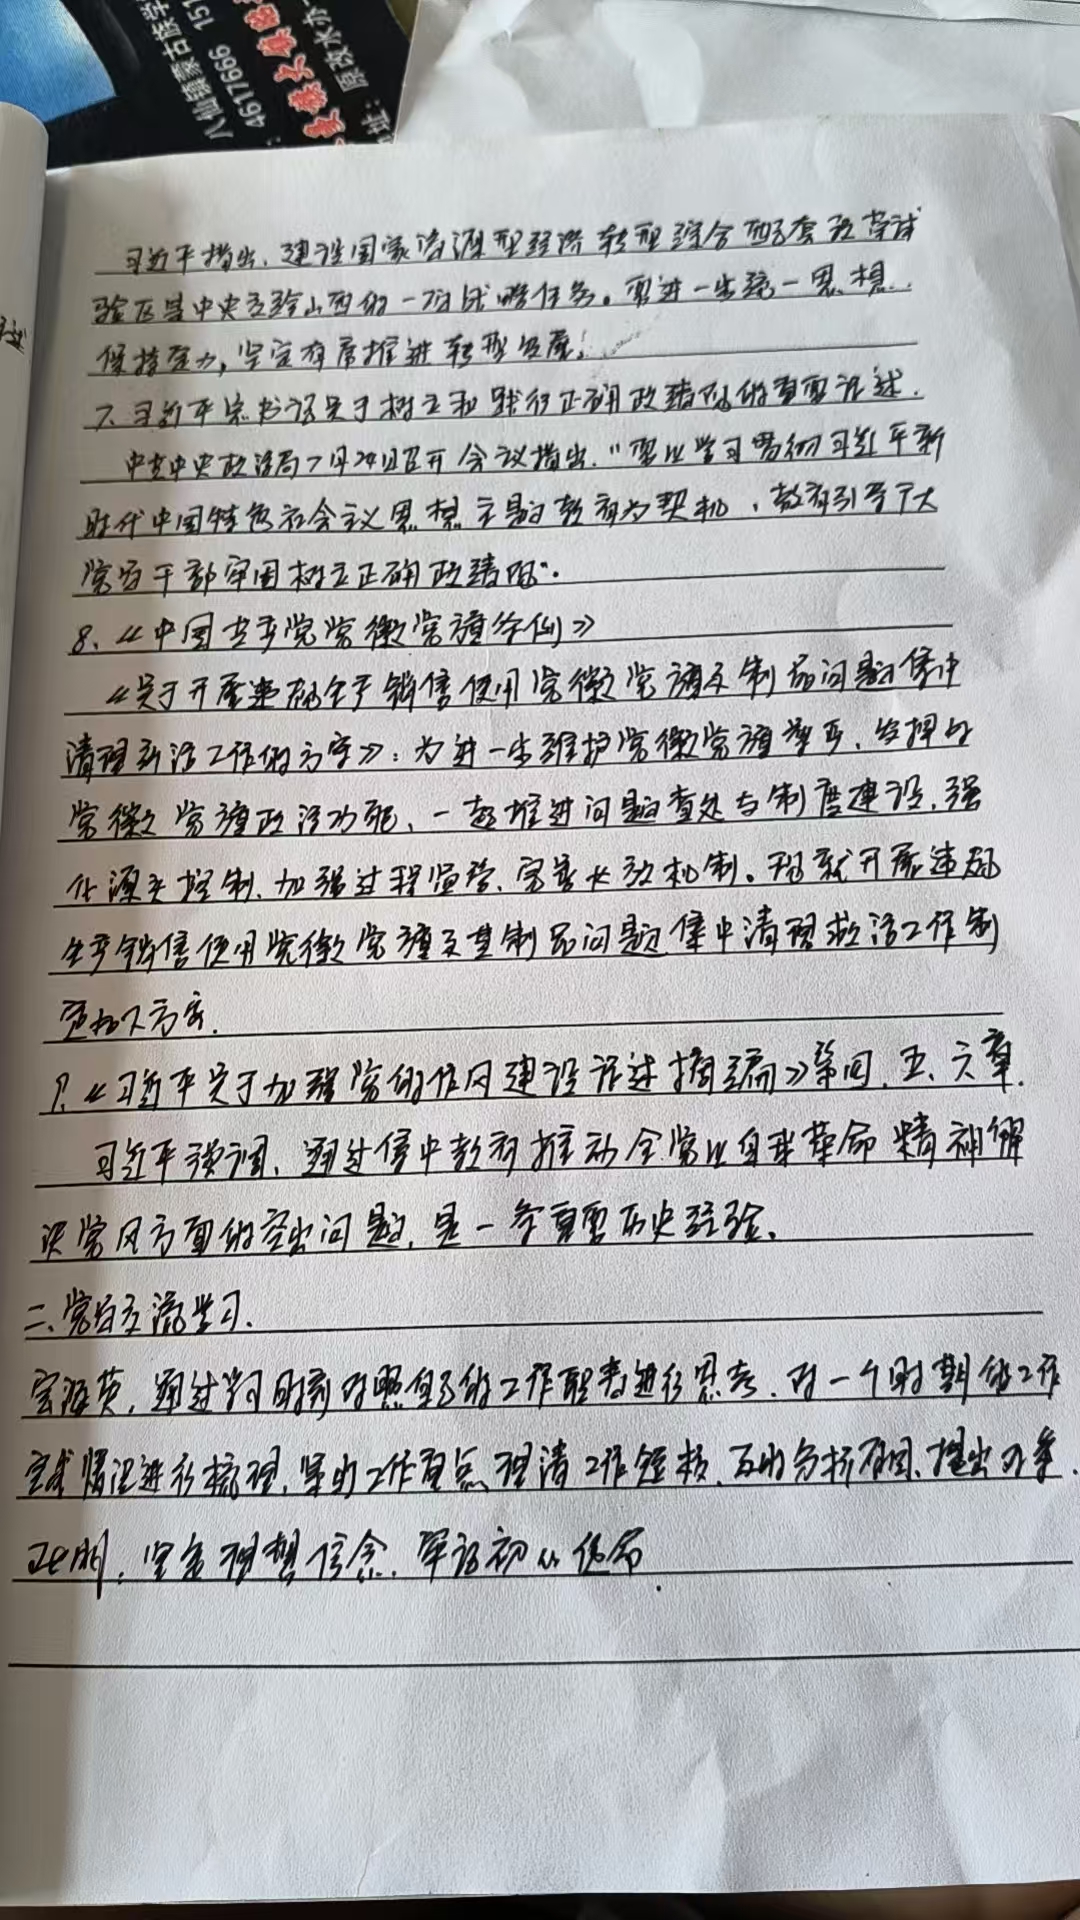 八仙镇蒙古族学
4617666 151
原改水办
址:
习近平指出,建设国家资源型经济转型综合配套改革试
验区是中央交给山西的一项战略任务。要进一步统一思想.
保持定力,坚定有序推进转型发展.
7.习近平总书记关于树立和践行正确政绩观的重要论述.
中共中央政治局7月24日召开会议指出."要以学习贯彻习近平新
时代中国特色社会主义思想主题教育为契机,教育引导广大
党员干部牢固树立正确政绩观".
8、《中国共产党党徽党旗条例》
《关于开展违规生产销售使用党徽党旗及制品问题集中
清理整治工作的方案》:为进一步维护党徽党旗尊严、发挥好
党徽党旗政治功能、一起推进问题查处与制度建设,强
化源头控制、加强过程监管、完善长效机制。现就开展违规
生产销售使用党徽党旗及其制品问题集中清理整治工作制
定如下方案.
9.《习近平关于加强党的作风建设论述摘编》第四、五、六章.
习近平强调,通过集中教育推动全党以自我革命精神解
决党风方面的突出问题,是一条重要历史经验.
二、党员交流学习.
海英,通过学习时刻对照自己的工作职责进行思考.对一个时期的工作
完成情况进行梳理,工作重点理清工作短板,分析原因,提出
坚定理想信念.牢记初心使命